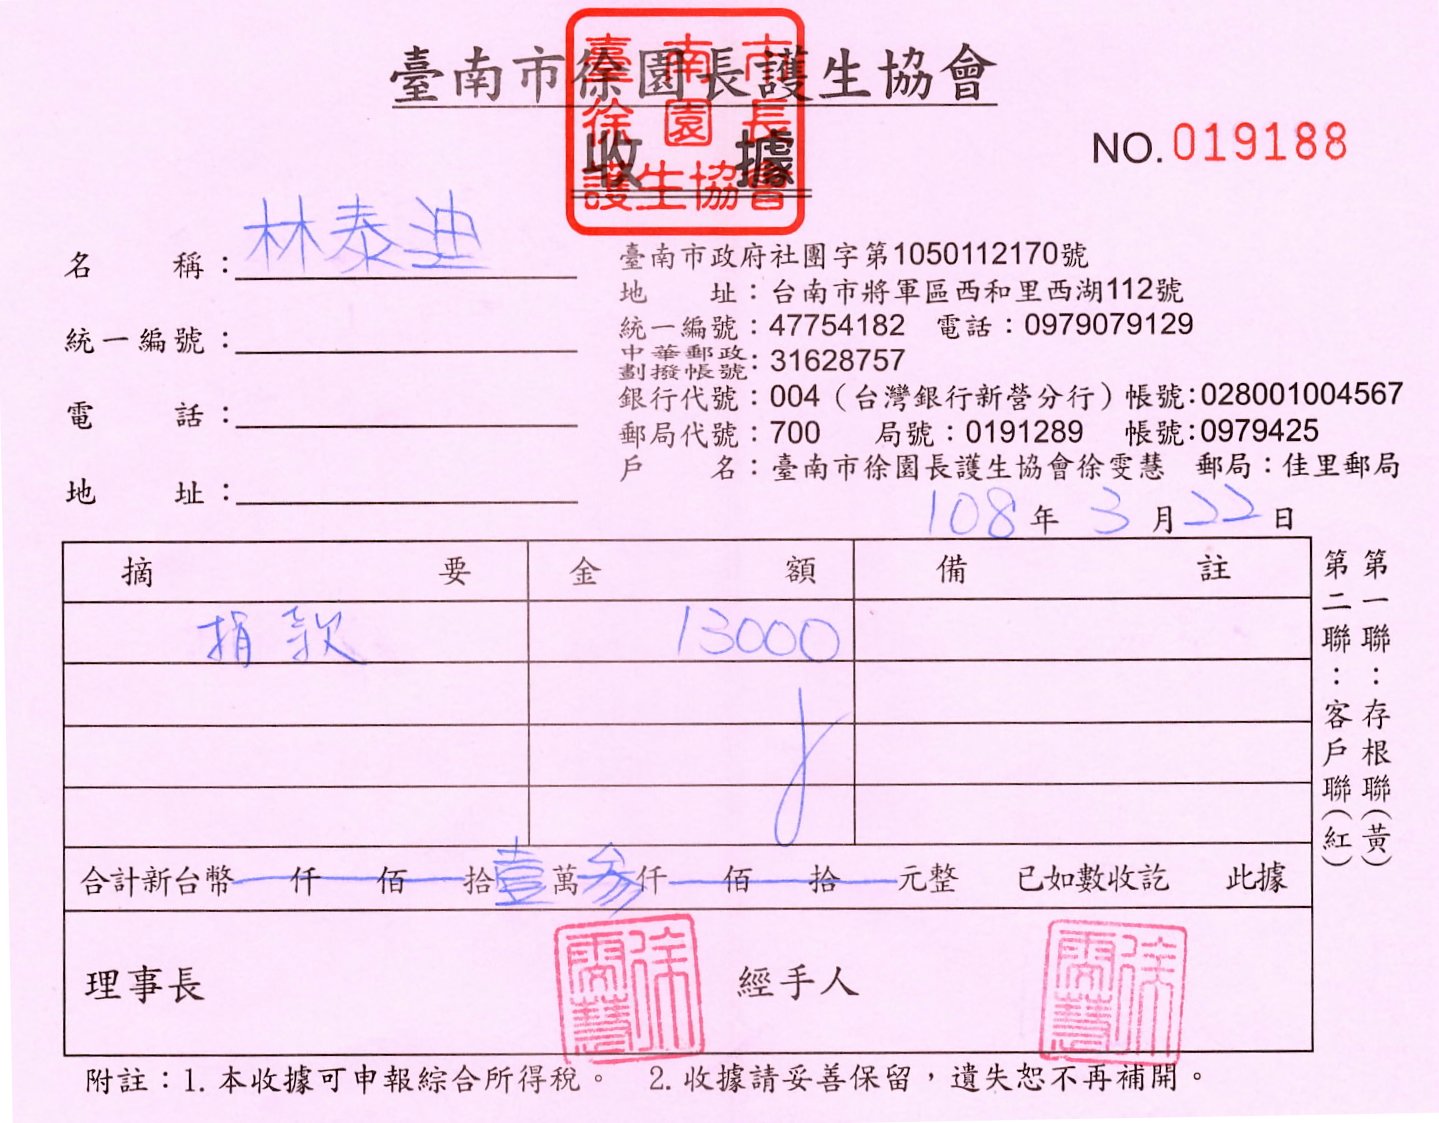 臺南市徐園長護生協會
臺南市
徐園長
護生協會
收據
NO.019188
名稱：林泰迪
統一編號：
電話：
地址：
臺南市政府社團字第1050112170號
地址：台南市將軍區西和里西湖112號
統一編號：47754182 電話：0979079129
中華郵政劃撥帳號：31628757
銀行代號：004（台灣銀行新營分行）帳號:028001004567
郵局代號：700 局號：0191289 帳號:0979425
戶名：臺南市徐園長護生協會徐雯慧 郵局：佳里郵局
108年3月22日
摘要 金額 備註
捐款 13000
合計新台幣 仟 佰 拾壹萬參仟 佰 拾 元整 已如數收訖 此據
理事長 徐雯慧 經手人 徐雯慧
附註：1.本收據可申報綜合所得稅。 2.收據請妥善保留，遺失恕不再補開。
第一聯：存根聯（黃）
第二聯：客戶聯（紅）